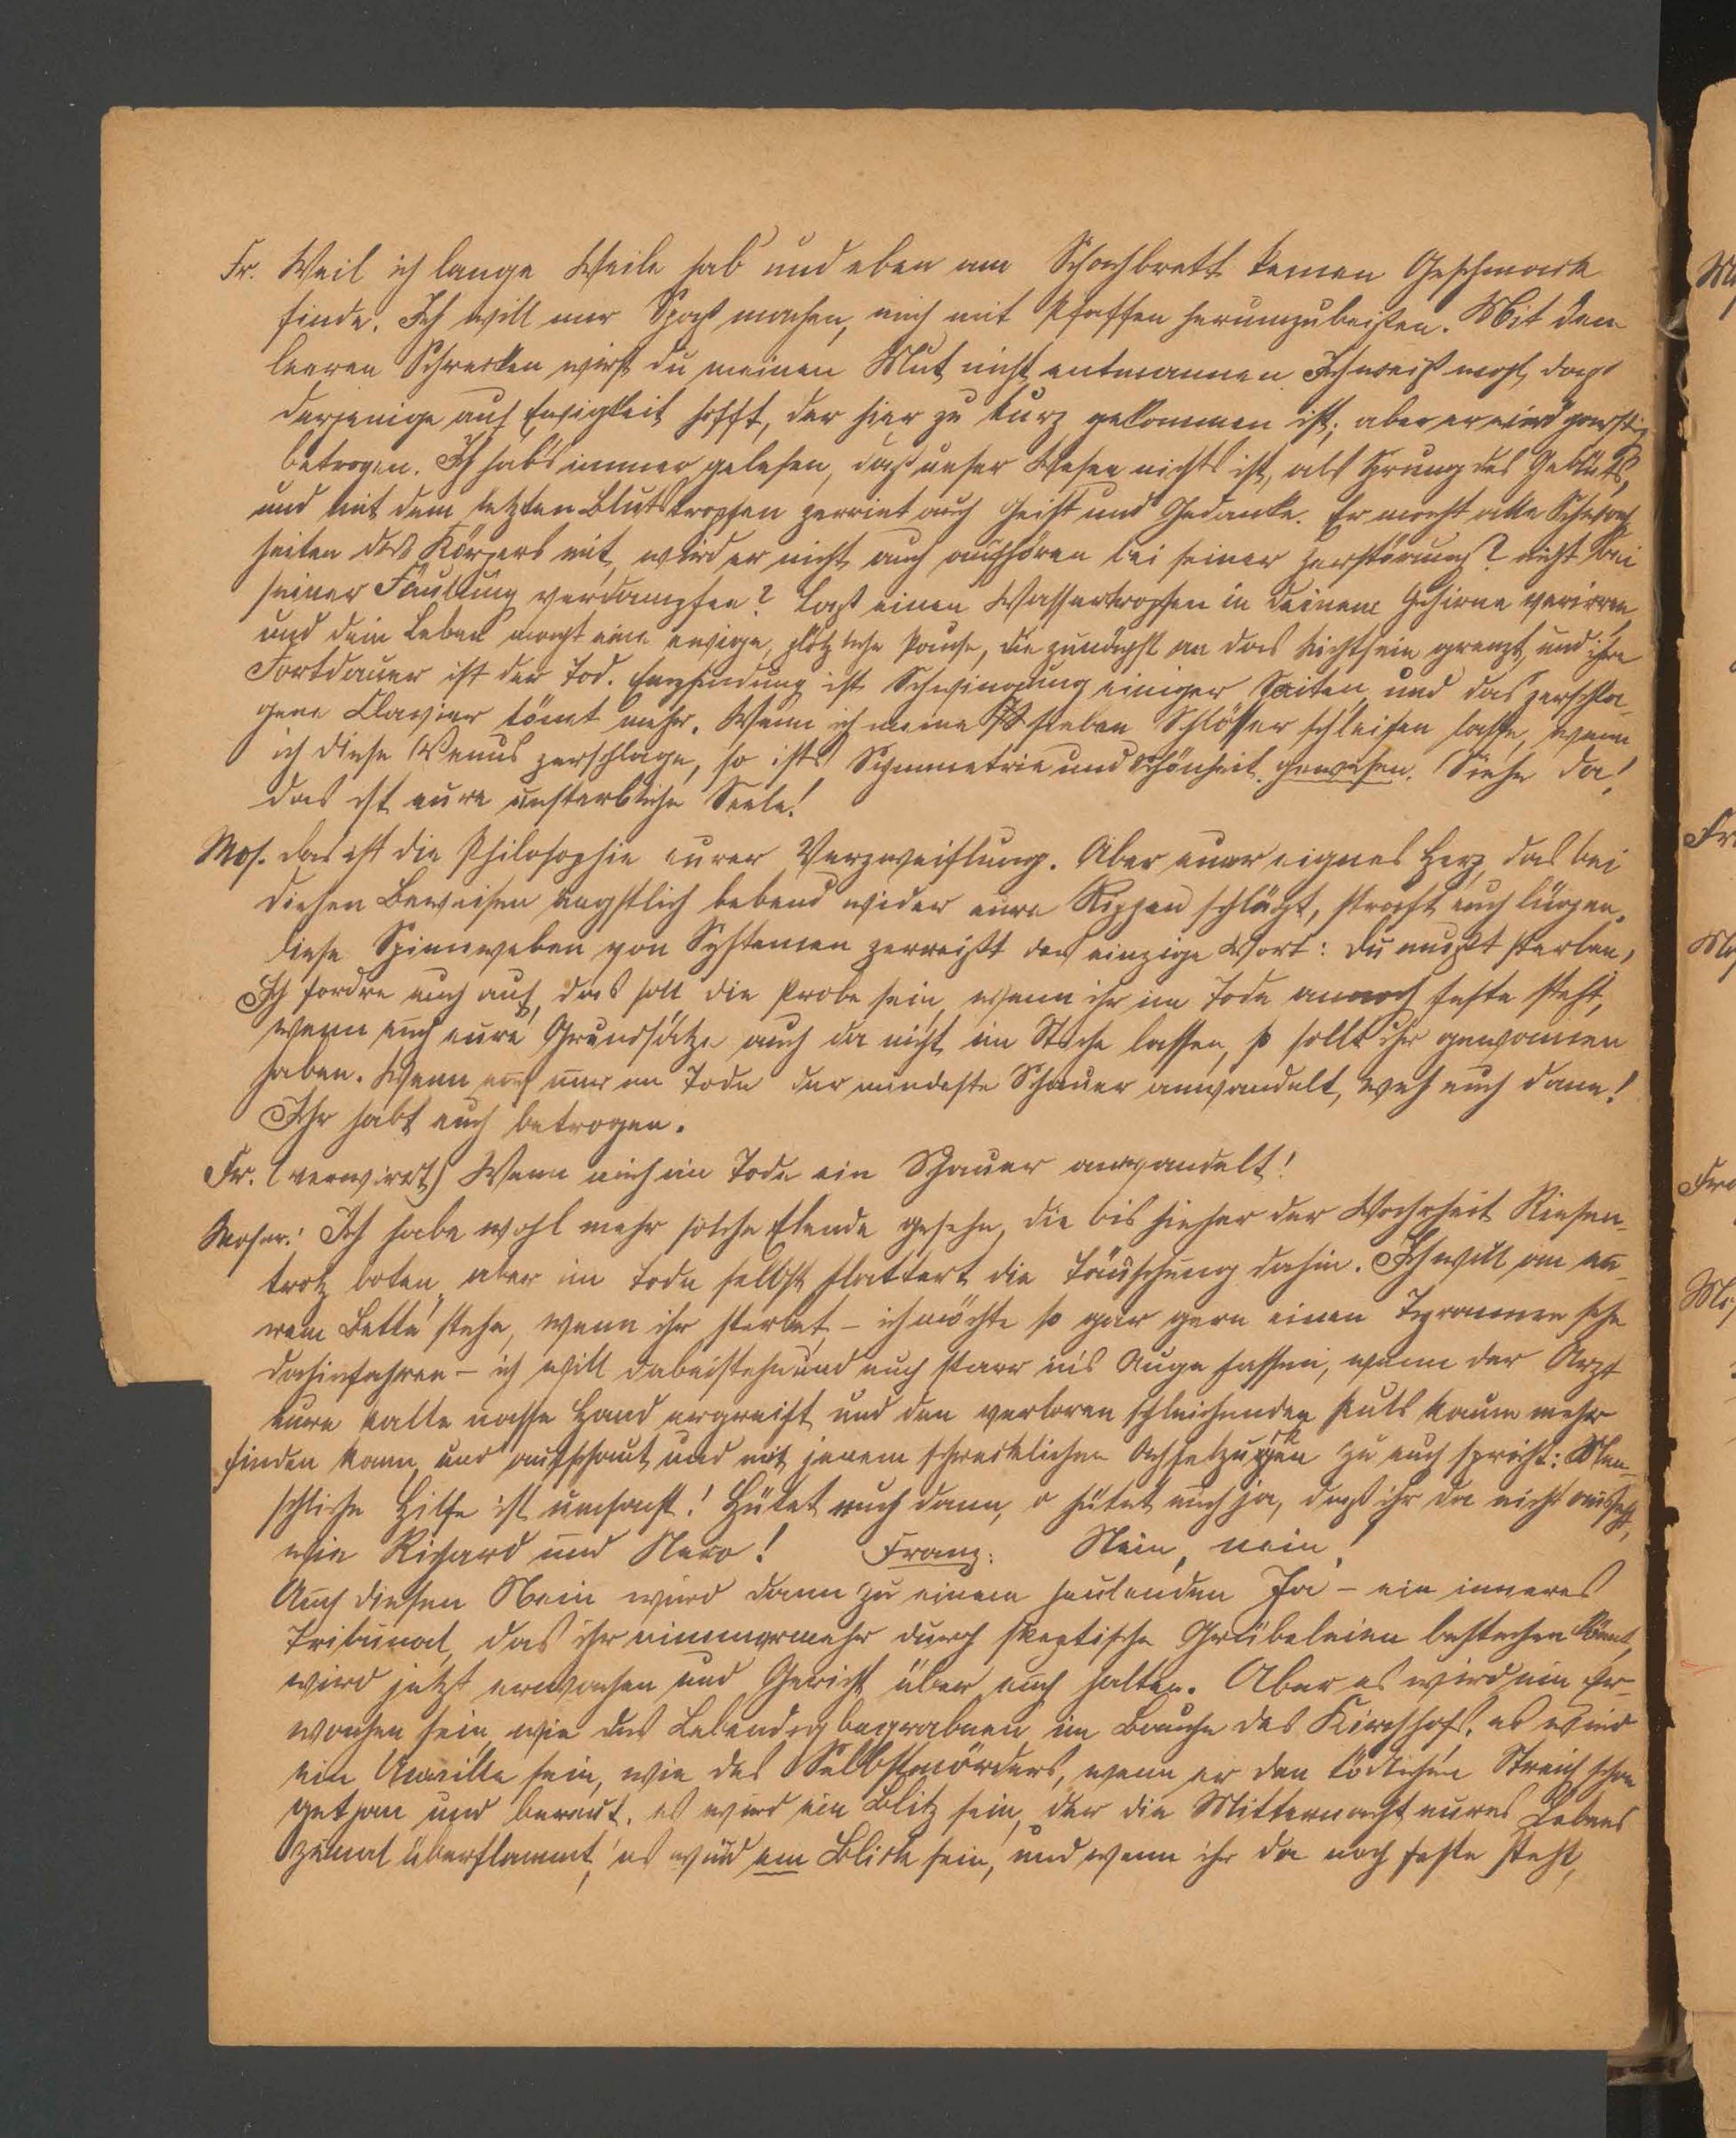 Fr. Weil ich lange Weile hab und eben am Schachbrett keinen Geschmack
finde. Ich will mir Spaß machen, mich mit Pfaffen herumzubeißen. Mit den
leeren Schrecken wirst du meinen Mut nicht entmannen Ich weiß wohl, daß
derjenige auf Ewigkeit hofft, der hier zu kurz gekommen ist; aber er wird garstig
betrogen. Ich habs immer gelesen, daß unser Wesen nichts ist, als Sprung des Geblüts,
und mit dem letzten Blutstropfen zerrint auch Geist und Gedanke. Er macht alle Schwach
heiten des Körpers mit, wird er nicht auch aufhören bei seiner Zerstörung? nicht bei
seiner Fäulung verdampfen? Laß einen Wassertropfen in deinem Gehirne verirren
und dein Leben macht eine ewige, plötzliche Pause, die zunächst an das Nichtsein grenzt, und ihre
Fortdauer ist der Tod. Empfindung ist Schwingung einiger Saiten und das zerschla-
gene Clavier tönnt mehr. Wenn ich meine sieben Schlösser schleifen lasse, wenn
ich diese Venus zerschlage, so ists Symmetrie und Schönheit gewesen. Siehe da!
das ist eure unsterbliche Seele!
Mos. das ist die Philosophie eurer Verzweiflung. Aber euer eignes Herz, das bei
diesen Beweisen ängstlich bebend wider eure Rippen schlägt, straft euch lügen.
diese Spinnweben von Systemen zerreißt das einzige Wort: du mußt sterben,
Ich fordre euch auf, das soll die Probe sein, wenn ihr im Tode annoch feste steht,
wenn euch eure Grundsätze auch da nicht im Stiche lassen, so sollt ihr gewonnen
haben. Wenn euch nur im Tode der mindeste Schauer anwandelt, weh euch dann!
Ihr habt euch betrogen.
Fr. (verwirrt) Wenn mich im Tode ein Schauer anwandelt!
Moser: Ich habe wohl mehr solche Elende gesehn, die bis hieher der Wahrheit Riesen-
trotz boten, aber im Tode selbst flattert die Täuschung dahin. Ich will an eu-
rem Bette stehn, wenn ihr sterbet – ich möchte so gar gern einen Tyrannen sehn
dahinfahren – ich will dabeistehn und euch starr ins Auge fassen, wenn der Arzt
eure kalte nasse Hand ergreift und den verloren schleichenden Puls kaum mehr
finden kann, und aufschaut und mit jenem schrecklichen Achselzucken zu euch spricht: Men-
schliche Hilfe ist umsonst! Hütet euch dann, o hütet euch ja, daß ihr da nicht ausseht,
wie Richard und Nero! Franz: Nein, nein!
Auch diesen Nein wird dann zu einem heulenden Ja – ein inneres
Tribunal, das ihr nimmermehr durch skeptische Grübeleien bestechen könnt,
wird jetzt erwachen und Gericht über euch halten. Aber es wird ein Er-
wachen sein, wie des Lebendigbegrabnen im Bauche des Kirchhofs. es wird
ein Unwille sein, wie des Selbstmörders, wenn er den tödlichen Streich schon
gethan und bereut. es wird ein Blitz sein, der die Mitternacht eures Lebens
zumal überflammt, es wird ein Blick sein, und wenn ihr da noch feste steht,